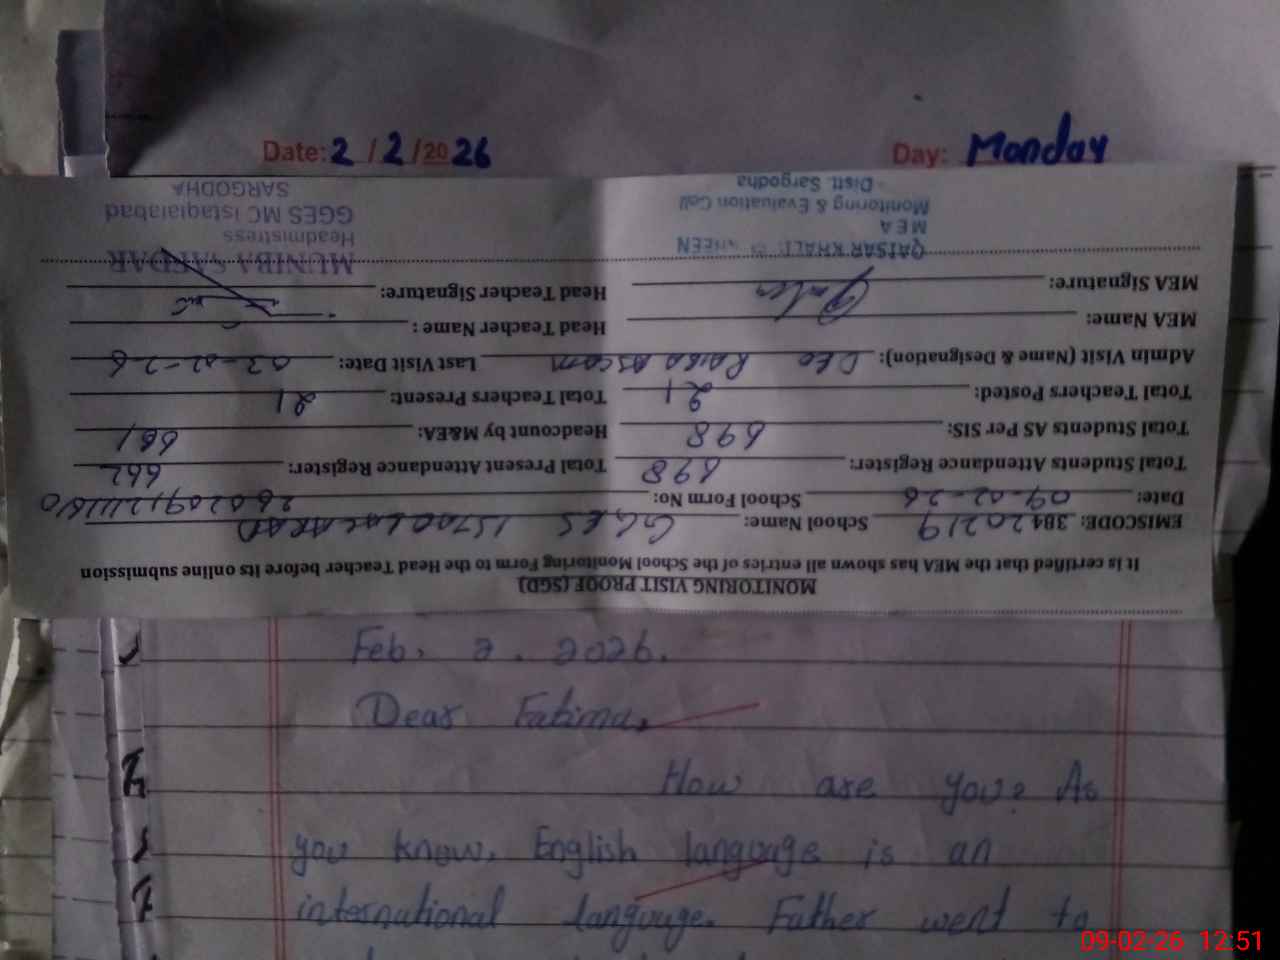 Date: 2 / 2 / 20 26 Day: Monday
MONITORING VISIT PROOF (SGD)
It is certified that the MEA has shown all entries of the School Monitoring Form to the Head Teacher before its online submission
EMISCODE: 38420219 School Name: GGES
Date: 09-02-26 School Form No:
Total Students Attendance Register: 698 Total Present Attendance Register: 662
Total Students AS Per SIS: 698 Headcount by M&EA: 661
Total Teachers Posted: 21 Total Teachers Present: 21
Admin Visit (Name & Designation): Last Visit Date:
MEA Name: Head Teacher Name :
MEA Signature: Head Teacher Signature:
QAISAR
MEA
Monitoring & Evaluation Cell
Distt. Sargodha
MUNIBA SAFDAR
Headmistress
GGES MC Istaqlalabad
SARGODHA
Feb. 2. 2026.
Dear Fatima,
How are you? As
you know, English language is an
international language. Father went to
09-02-26 12:51